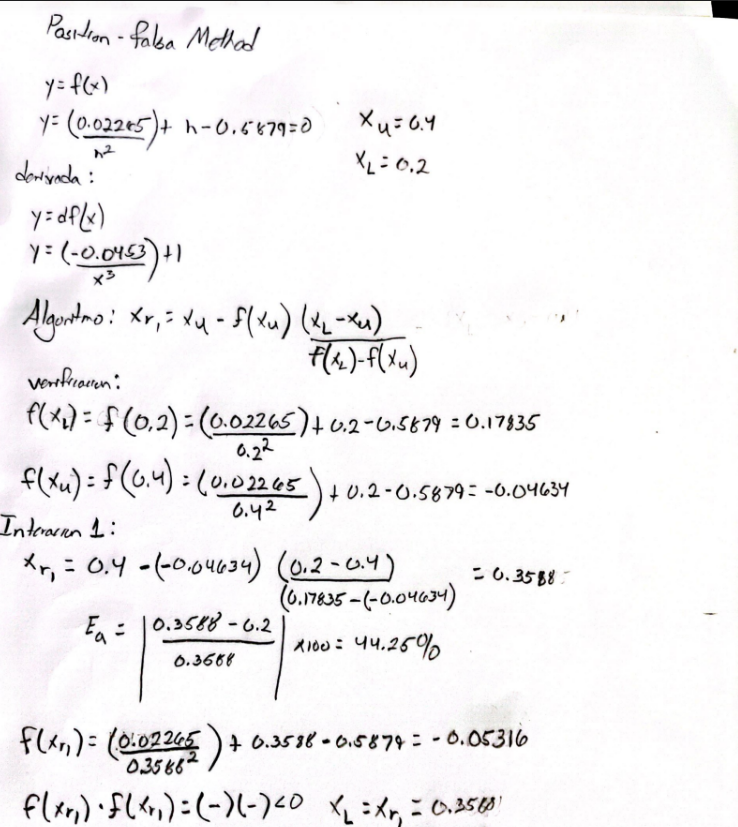 Position - falsa Method
y = f(x)
y = (0.02265/h²) + h - 0.5879 = 0    x_u = 0.4
x_L = 0.2
derivada :
y = df(x)
y = (-0.0453/x³) + 1
Algoritmo : x_r₁ = x_u - f(x_u) (x_L - x_u)/(f(x_L) - f(x_u))
verificacion :
f(x_L) = f(0,2) = (0.02265/0.2²) + 0.2 - 0.5879 = 0.17835
f(x_u) = f(0.4) = (0.02265/0.4²) + 0.2 - 0.5879 = -0.04634
Interacion 1 :
x_r₁ = 0.4 - (-0.04634) (0.2 - 0.4)/(0.17835 - (-0.04634)) = 0.3588
E_a = |(0.3588 - 0.2)/0.3588| x100 = 44.25%
f(x_r₁) = (0.02265/0.3588²) + 0.3588 - 0.5879 = -0.05316
f(x_r₁) · f(x_r₁) = (-)(-) < 0    x_L = x_r₁ = 0.3588